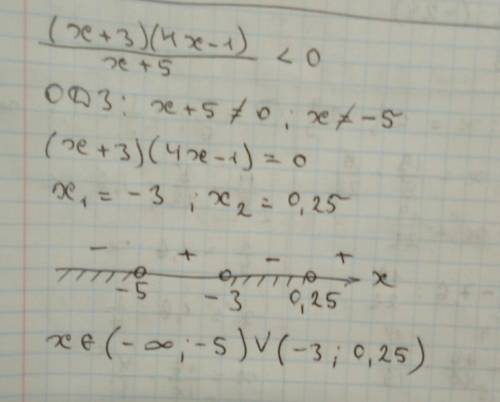 (x+3)(4x-1)/(x+5) < 0
ОДЗ: x+5≠0; x≠-5
(x+3)(4x-1)=0
x₁=-3; x₂=0,25
- + - +
-5 -3 0,25 x
x∈(-∞;-5)∨(-3;0,25)